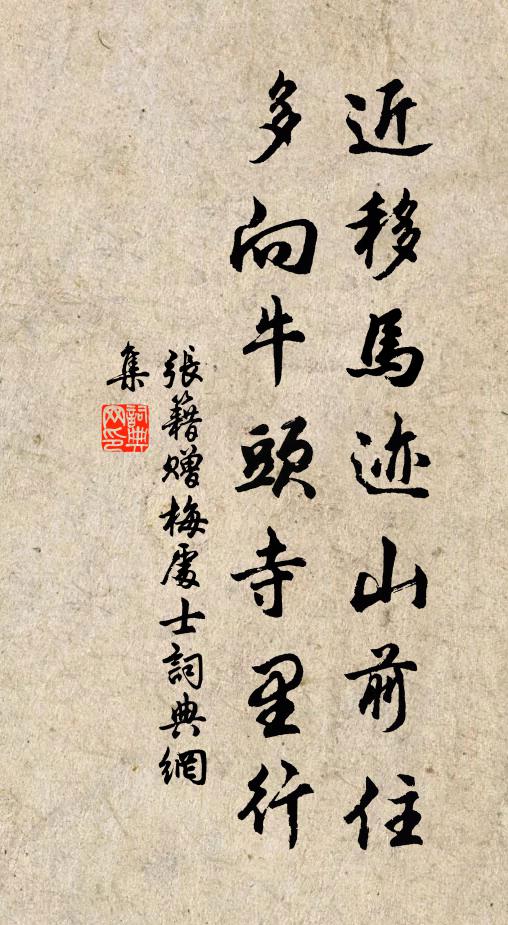 近移馬迹山前住
多向牛頭寺里行
張籍贈梅處士詞典網
集
詞典
网印